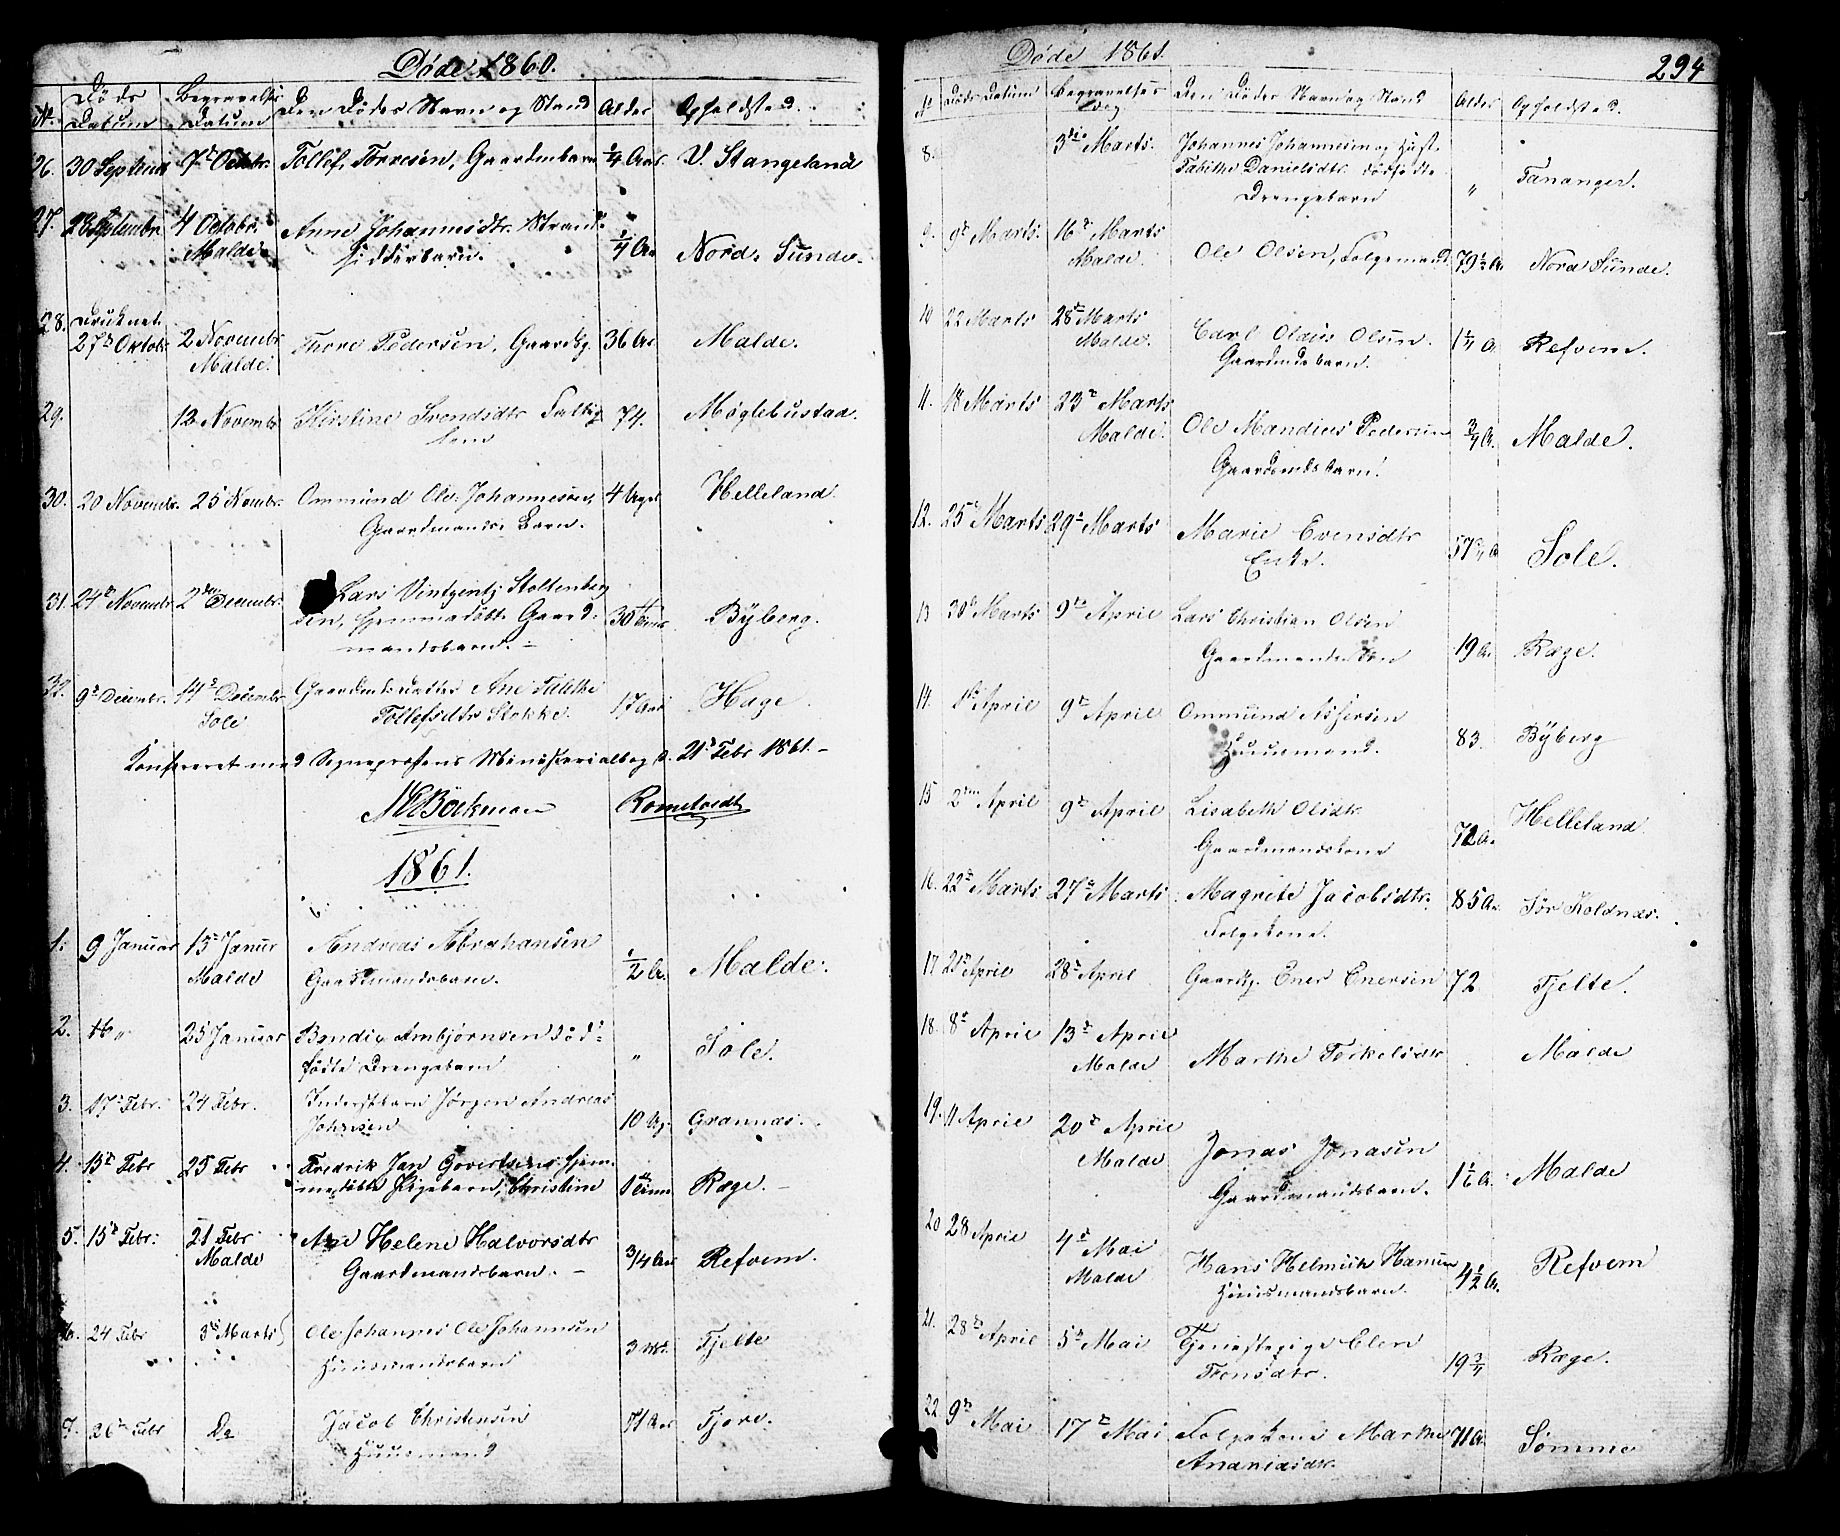 Døde 1860.
No. Døds Datum Begravelses Datum Den Dødes Navn og Stand Alder Opholdsted.
26. 30 Septembr 7de Octobr. Tollef Torresen, Gaardmbarn 1/4 Aar. V. Stangeland
27. 28 Septembr 4 Octobr. Anne Johannesdtr. Strand-
Malde. sidderbarn. 1/4 Aar Nord. Sunde.
28. Druknet
27de Oktobr 2 Novembr Thore Pedersen, Gaardbg. 36 Aar Malde.
Malde.
29. 12 Novembr Kirstine Svendsdtr Fattig 74. Møglebustad.
lem
30. 20 Novembr. 25 Novembr. Ommund Ole Johannesen, 4 Uger Helleland.
Gaardmands Barn.
31. 24de Novembr 2den Decembr. Lars Vintgentj Stoltenberg
sen, hjemmedøbt Gaard- 30 Timer Byberg.
mandsbarn. -
32. 9de Decembr. 14de Decembr Gaardmdsdatter Ane Tabithe
Sole Tollefsdtr Stokke. 17 Aar Hage.
Konfereret med Sognepræstens Ministerialbog d. 21de Febr 1861. -
Bøckman Romtvedt
1861.
1. 9 Januar 15de Janur Andreas Abrahamsen
Malde Gaardmandsbarn. 1/2 A. Malde.
2. 16 „ 25 Januar Bendix Ambjørnsen død-
fødte Drengebarn „ Sole.
3. 17de Febr. 24 Febr. Inderstbarn Jørgen Andreas
Johnsen 10 Ug. Grannæs.
4. 15de Febr 25 Febr Fredrik Jan Govertsens hjem-
medøbte Pigebarn, Christine 1 Time Ræge. -
5. 15de Febr. 21 Febr Ane Helene Halvorsdtr
Malde Gaardmandsbarn. - 3/4 Aar Refvem.
6. 24 Febr 3de Marts Ole Johannes Ole Johannsen
Huusmandsbarn 3 Mdr. Tjelte
7. 26de Febr Do Jacob Christensen 71 Aar Tjore.
Huusmand
Døde 1861. 294
No Døds Datum Begravelses dag Den Dødes Navn og Stand Alder Opholdsted.
8. 3die Marts. Johannes Johannesen og Hust.
Tabithe Danielsdtr. dødfødte
Drengebarn „ Tananger.
9. 9de Marts. 16de Marts
Malde. Ole Olsen, Følgemand 79 1/2 A. Nord Sunde.
10 22 Marts 28de Marts
Malde. Carl Olaus Olsen.
Gaardmdsbarn. 1 1/4 A. Refvem.
11. 18 Marts 23de Marts
Malde. Ole Mandius Pedersen 3/4 A. Malde.
Gaardmdsbarn.
12. 25de Marts 29de Marts Marie Evensdtr
Enke. 57 3/4 A Sole.
13 30te Marts 9de April Lars Christian Olsen
Gaardmands Søn 19 A. Ræge.
14. 1ste April 9de April Ommund Assersen
Huusmand. 83. Byberg
15 2den April 9de April Lisabeth Olsdtr. Helleland
Gaardmandskone 72 A.
16. 22de Marts 27de Marts Magrete Jacobsdtr. 85 A. Sør Kolnæs.
Følgekone.
17 21de April 28de April Gaardbg. Ener Enersen 72 Tjelte.
18. 8de April 13de April
Malde Marthe Torkelsdtr Malde
19. 11 April 20de April
Malde Jonas Jonasen
Gaardmandsbarn. 1 1/6 A. Malde
20 28 April 4de Mai
Malde Hans Helmick Hansen
Huusmandsbarn. 4 1/2 A. Refvem
21. 28de April 5te Mai Tjenestepige Elen
Tronsdtr. 19 3/4 Ræge.
22 9de Mai 17de Mai Følgekone Marthe 71 A. Sømme
Ananiasdtr.